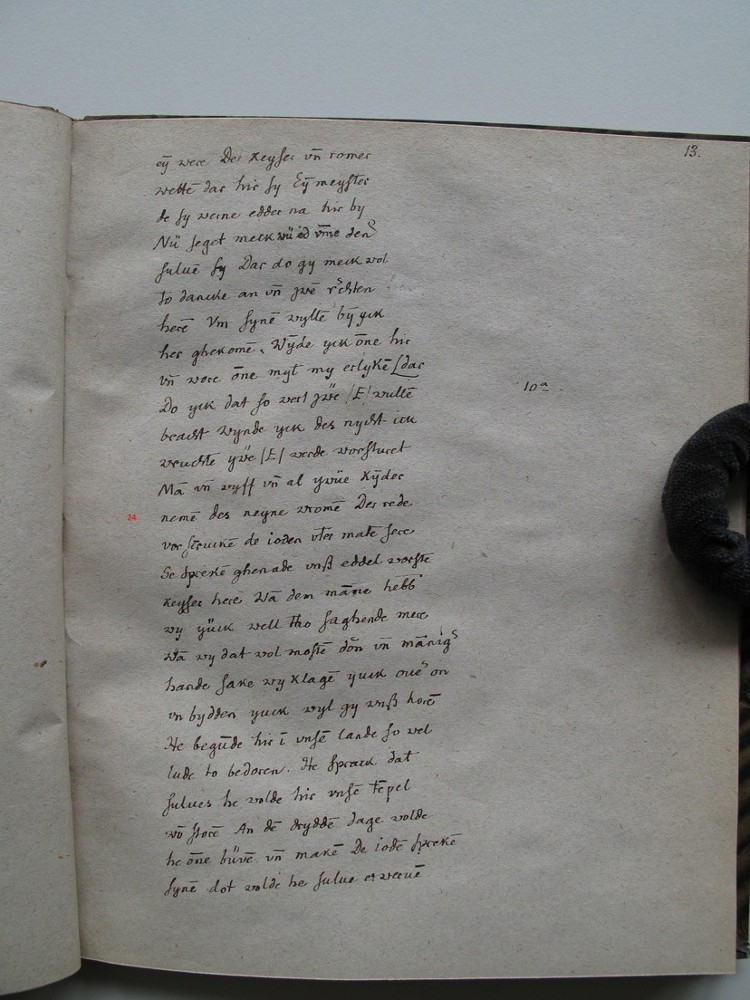 13.
eÿ were Der keyser vn̄ romer
wettē dar hir sy Eÿ meyster
de sy verne edder na hir by
Nü seget meck wü ed vm̄e den
suluē sy Dar do gy meck wol
to dancke an vn̄ jwē rechten
herē Vm synē wyllē bÿ yck
her ghekomē, Wÿde yck ōne hir
vn̄ wore ōne myt my erlykē [dar
Do yck dat so werl jwe /E/ wultē
beacht Wynde yck des nycht ick
vruchte ywe /E/ werde vorsturet
Mā vn̄ wyff vn̄ al ywüe kÿder
24
nemē des neyne vromē Der rede
vorscruckē de ioden vter mate sere
Se sprekē ghenade vnß eddel vorste
keyser herē Vā dem māne hebb
wy yück well tho saghende mere
Vā wy dat wol mostē dōn vn̄ mānig
hande sake wy klagē yuck oue on
vn bydden yuck wyl gy vnß horē
He begūde hir ī vnsē lande so vel
lude to bedoren. He sprack dat
sulues he wolde hir vnsē tēpel
vō storē An dē drÿddē dage wolde
he ōne būvē vn̄ makē De iodē sprekē
synē dot wolde he sulue erweruē
10a.